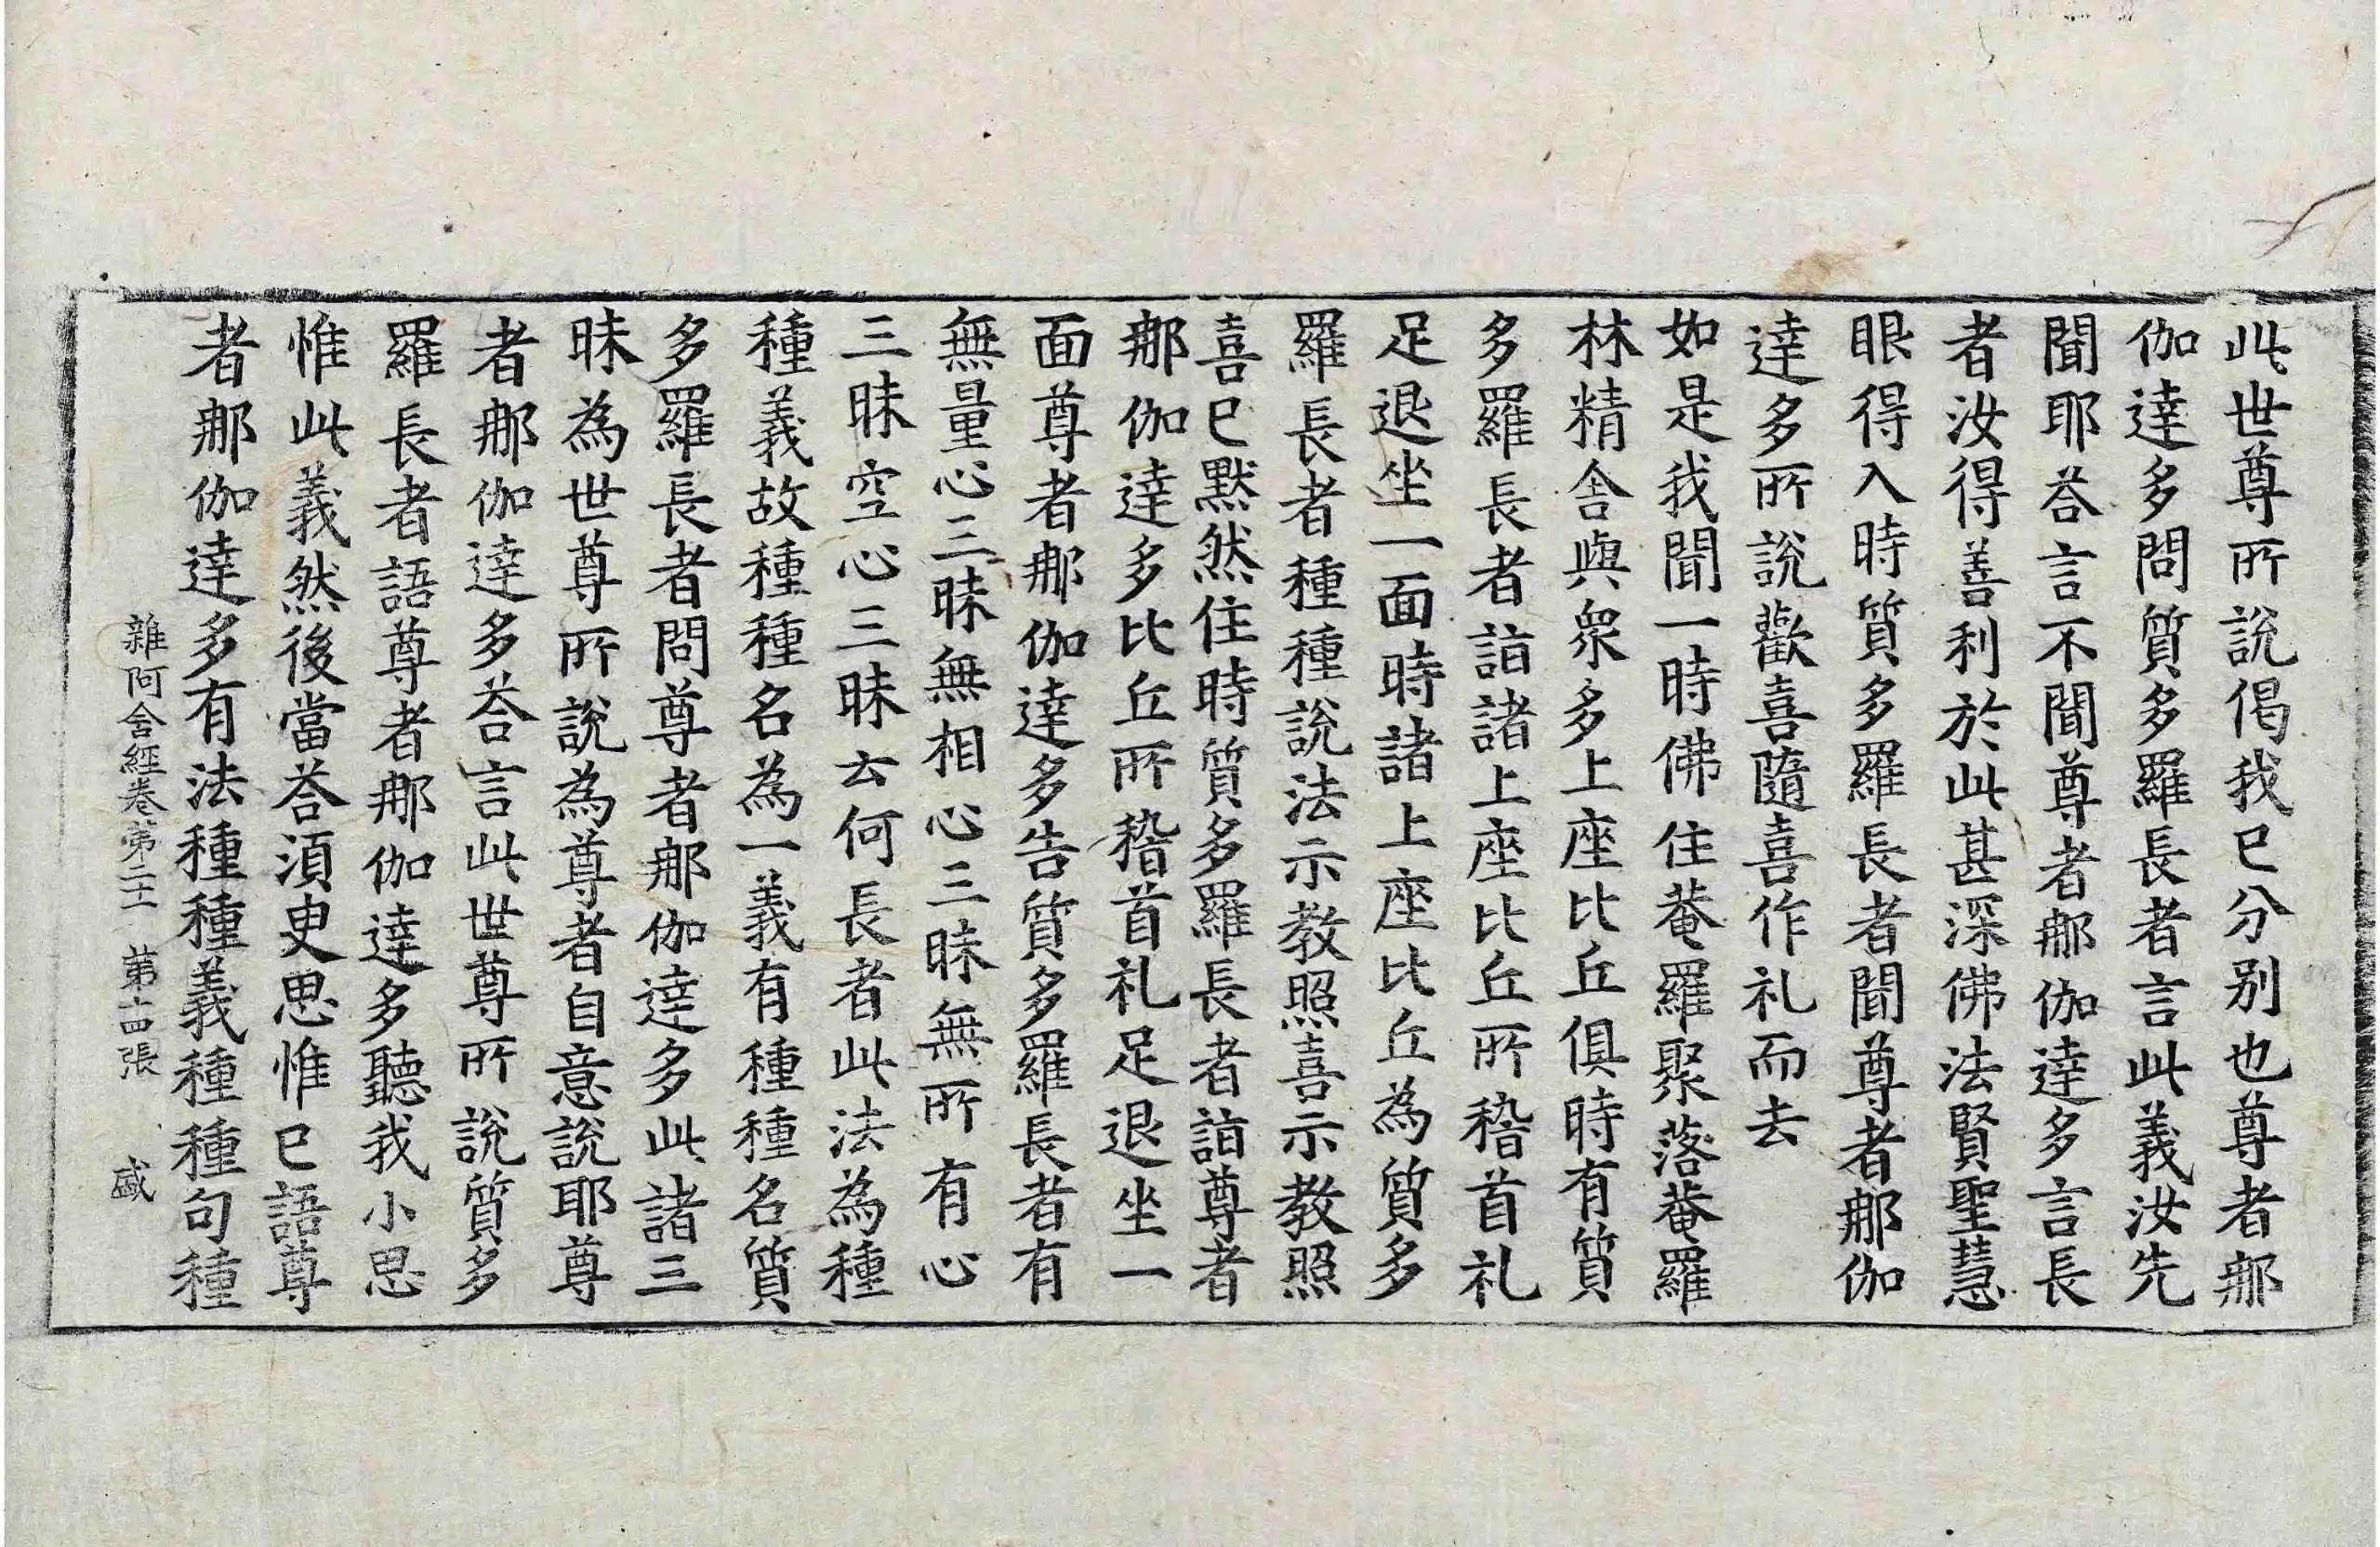 此世尊所說偈我已分别也尊者那
伽達多問質多羅長者言此義汝先
聞耶荅言不聞尊者那伽達多言長
者汝得善利於此甚深佛法賢聖慧
眼得入時質多羅長者聞尊者那伽
達多所說歡喜隨喜作礼而去
如是我聞一時佛住菴羅聚落菴羅
林精舍與衆多上座比丘俱時有質
多羅長者詣諸上座比丘所稽首礼
足退坐一面時諸上座比丘為質多
羅長者種種說法示教照喜示教照
喜已默然住時質多羅長者詣尊者
那伽達多比丘所稽首礼足退坐一
面尊者那伽達多告質多羅長者有
無量心三昧無相心三昧無所有心
三昧空心三昧云何長者此法為種
種義故種種名為一義有種種名質
多羅長者問尊者那伽達多此諸三
昧為世尊所說為尊者自意說耶尊
者那伽達多荅言此世尊所說質多
羅長者語尊者那伽達多聽我小思
惟此義然後當荅須臾思惟已語尊
者那伽達多有法種種義種種句種
雜阿含經卷第二十一 第十四張 盛